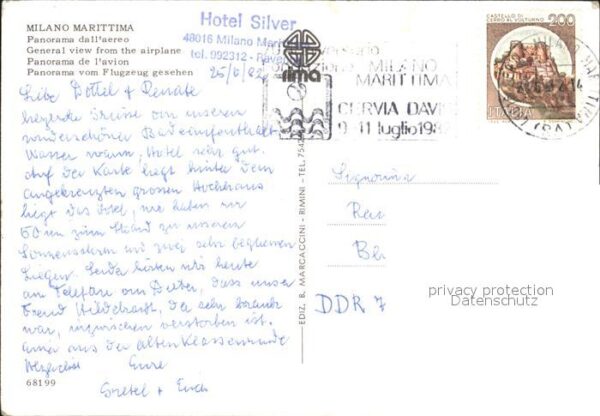 MILANO MARITTIMA
Panorama dall'aereo
General view from the airplane
Panorama de l'avion
Panorama vom Flugzeug gesehen
Hotel Silver
48016 Milano Mari
tel. 992312 -
rima
MILANO
MARITTIMA
CERVIA DAVIS
9-11 luglio 198
CASTELLO DI
CERRO AL VOLTURNO
200
ITALIA
Liebe Dottel + Renate
herzliche Grüsse von unserem
wunderschönen Badeaufenthalt
Wasser warm, Hotel sehr gut.
Auf der Karte liegt hinter dem
angekreuzten grossen Hochhaus
liegt das Hotel, wir haben nur
60 m zum Strand zu unseren
Sonnenschirm mit zwei sehr bequemen
Liegen. Leider hörten wir heute
am Telefon von Dieter, dass unser
Freund Hildebrandt, der sehr krank
war, inzwischen verstorben ist.
aus der alten Klassenrunde
Herzlichst Eure
Gretel + Erich
68199
EDIZ. B. MARCACCINI - RIMINI - TEL. 7542
Signorina
Ren
DDR 7
privacy protection
Datenschutz